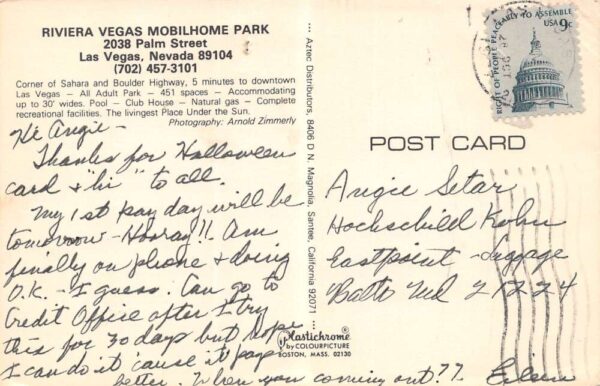 RIVIERA VEGAS MOBILHOME PARK
2038 Palm Street
Las Vegas, Nevada 89104
(702) 457-3101
Corner of Sahara and Boulder Highway, 5 minutes to downtown
Las Vegas — All Adult Park — 451 spaces — Accommodating
up to 30' wides. Pool — Club House — Natural gas — Complete
recreational facilities. The livingest Place Under the Sun.
Photography: Arnold Zimmerly
Hi Angie -
Thanks for Halloween
card & "hi" to all.
My 1st pay day will be
tomorrow - Hooray!! Am
finally on phone & doing
O.K. - I guess. Can go to
Credit Office after I try
this for 30 days but hope
I can do it 'cause it pays
better. When you coming out??
Eileen
Aztec Distributors, 8406 D N. Magnolia, Santee, California 92071
Plastichrome
by COLOURPICTURE
BOSTON, MASS. 02130
POST CARD
Angie Setar
Hochschild Kohn
Eastpoint - Luggage
Balto Md 21224
RIGHT OF PEOPLE PEACEABLY TO ASSEMBLE
USA 9c